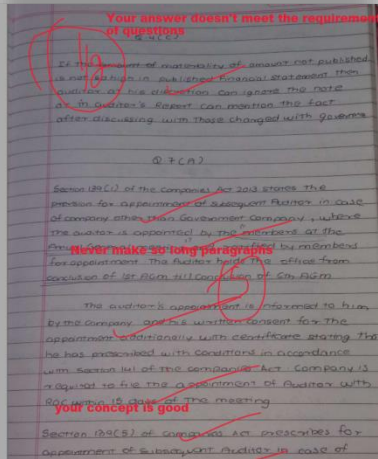 Your answer doesn't meet the requiremen
of questions
Q 4(C)
If the amount of materiality of amount not published
is not in published financial statement then
auditor at his discretion can ignore the note
or in auditor's Report can mention the fact
after discussing with those changed with governance
Q 7(A)
Section 139(1) of the companies Act 2013 states the
provision for appointment of subsequent Auditor in case
of company other than Government Company, where
the auditor is appointed by the members at the
Never make so long paragraphs
by members
for appointment. The Auditor holds the office from
conclusion of 1st AGM till conclusion of 6th AGM
5
The auditor's appointment is informed to him
by the company and his written consent for the
appointment additionally with certificate stating tha
he has prescribed with conditions in accordance
with section 141 of the companies Act. Company is
required to file the appointment of Auditor with
ROC within 15 days of the meeting
your concept is good
Section 139(5) of companies Act prescribes for
appointment of subsequent Auditor in case of